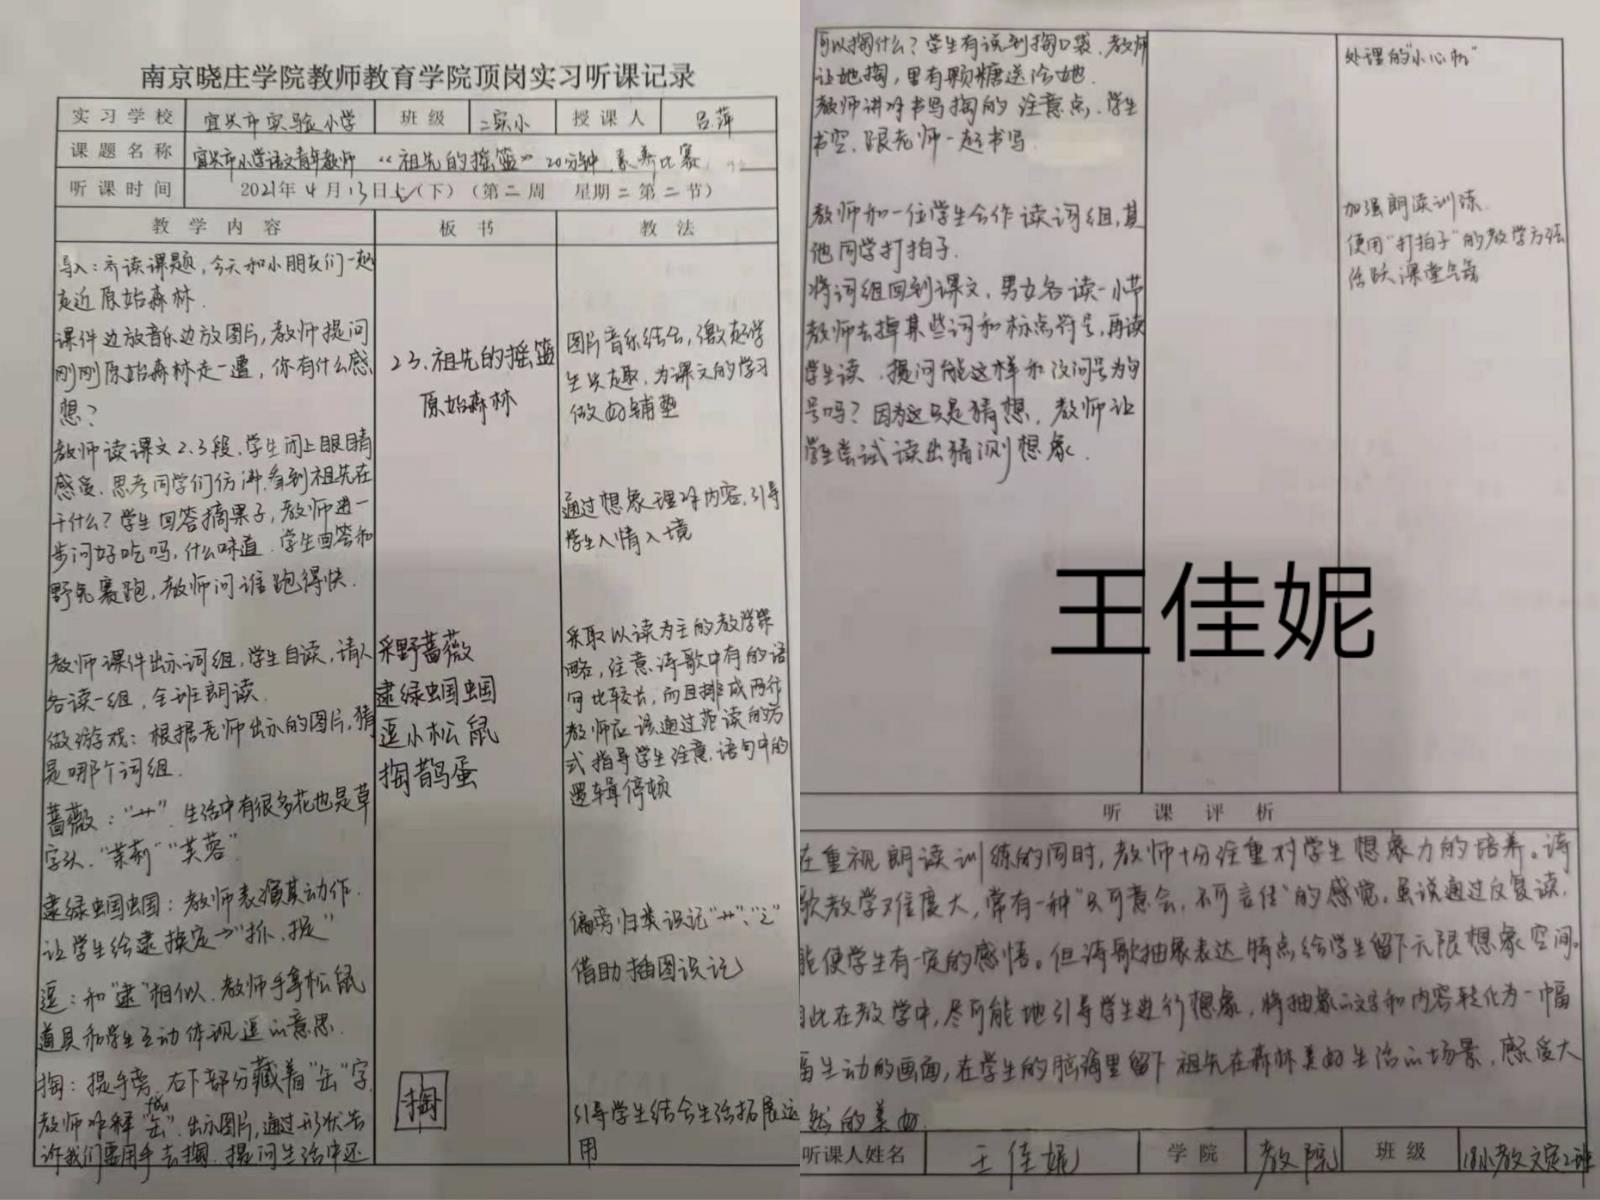 南京晓庄学院教师教育学院顶岗实习听课记录
实习学校 宜兴市实验小学 班级 二实小 授课人 吕萍
课题名称 宜兴市小学语文青年教师“祖先的摇篮”20分钟素养比赛
听课时间 2021年4月13日上(下)(第二周 星期二第二节)
教学内容 板书 教法
导入：齐读课题，今天和小朋友们一起
走近原始森林.
课件边放音乐边放图片，教师提问
刚刚原始森林走一遭，你有什么感
想？
教师读课文2.3段.学生闭上眼睛
感受.思考同学们仿佛看到祖先在
干什么？学生回答摘果子，教师进一
步问好吃吗，什么味道.学生回答和
野兔赛跑，教师问谁跑得快.
教师课件出示词组，学生自读，请人
各读一组，全班朗读.
做游戏：根据老师出示的图片，猜
是哪个词组.
蔷薇：“艹”.生活中有很多花也是草
字头.“茉莉”“芙蓉”
逮绿蝈蝈：教师表演其动作.
让学生给逮换定→“抓、捉”
逗：和“逮”相似.教师手拿松鼠
道具和学生互动体现逗的意思.
掏：提手旁，右下部分藏着“缶”字
fǒu
教师解释“缶”.出示图片，通过形状告
诉我们要用手去掏.提问生活中还
23.祖先的摇篮
原始森林
采野蔷薇
逮绿蝈蝈
逗小松鼠
掏鹊蛋
掏
图片音乐结合，激起学
生兴趣，为课文的学习
做好铺垫
通过想象理解内容，引导
学生入情入境
采取以读为主的教学策
略，注意诗歌中有的语
句比较长，而且排成两行
教师应该通过范读的方
式指导学生注意语句中的
逻辑停顿
偏旁归类识记“艹”、“辶”
借助插图识记
引导学生结合生活拓展运
用
可以掏什么？学生有说到掏口袋.教师
让她掏，里有颗糖送给她.
教师讲解书写掏的注意点.学生
书空，跟老师一起书写.
教师和一位学生合作读词组，其
他同学打拍子.
将词组回到课文，男女各读一小节
教师去掉某些词和标点符号，再读
学生读.提问能这样和改问号为句
号吗？因为这只是猜想，教师让
学生尝试读出猜测想象.
处理的“小心机”
加强朗读训练.
使用“打拍子”的教学方法
活跃课堂气氛
王佳妮
听课评析
在重视朗读训练的同时，教师十分注重对学生想象力的培养。诗
歌教学难度大，常有一种“只可意会，不可言传”的感觉，虽说通过反复读，
能使学生有一定的感悟。但诗歌抽象表达特点给学生留下无限想象空间。
因此在教学中，尽可能地引导学生进行想象，将抽象的文字和内容转化为一幅
幅生动的画面，在学生的脑海里留下祖先在森林美好生活的场景，感受大
自然的美好.
听课人姓名 王佳妮 学院 教院 班级 18小教文定2班